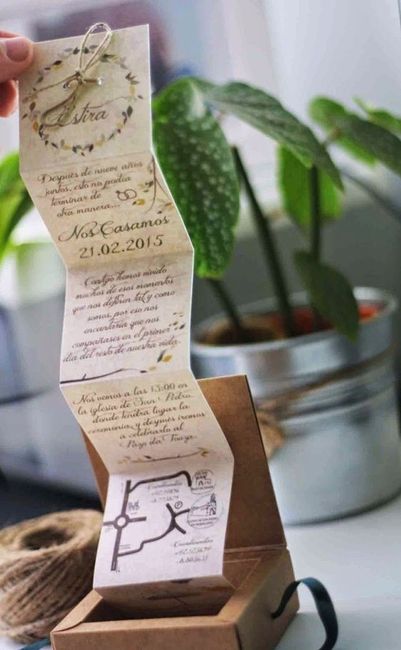 Estira
Después de nueve años
juntos, esto no podía
terminar de
otra manera...
Nos Casamos
21.02.2015
Contigo hemos vivido
muchos de esos momentos
que nos definen tal y como
somos, por eso nos
encantaría que nos
acompañases en el primer
día del resto de nuestra vida.
Nos vemos a las 13:00 en
la iglesia de San Pedro
donde tendrá lugar la
ceremonia, y después iremos
a celebrarlo al
Pazo da Touza.
Coordenadas
M
Coordenadas